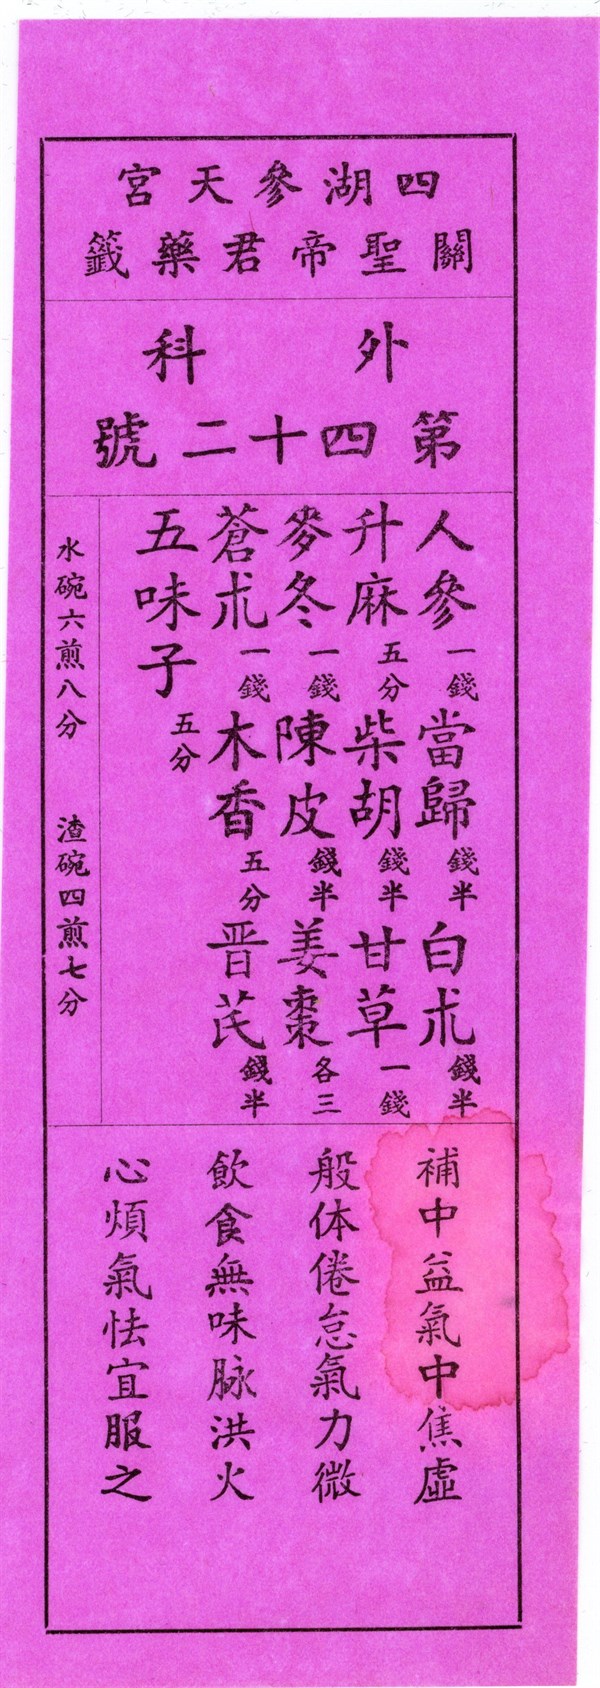 四湖參天宮
關聖帝君藥籤
外科
第四十二號
人參一錢當歸錢半白朮錢半
升麻五分柴胡錢半甘草一錢
麥冬一錢陳皮錢半姜棗各三
蒼朮一錢木香五分晋芪錢半
五味子五分
水碗六煎八分 渣碗四煎七分
補中益氣中焦虛
般体倦怠氣力微
飲食無味脉洪火
心煩氣怯宜服之